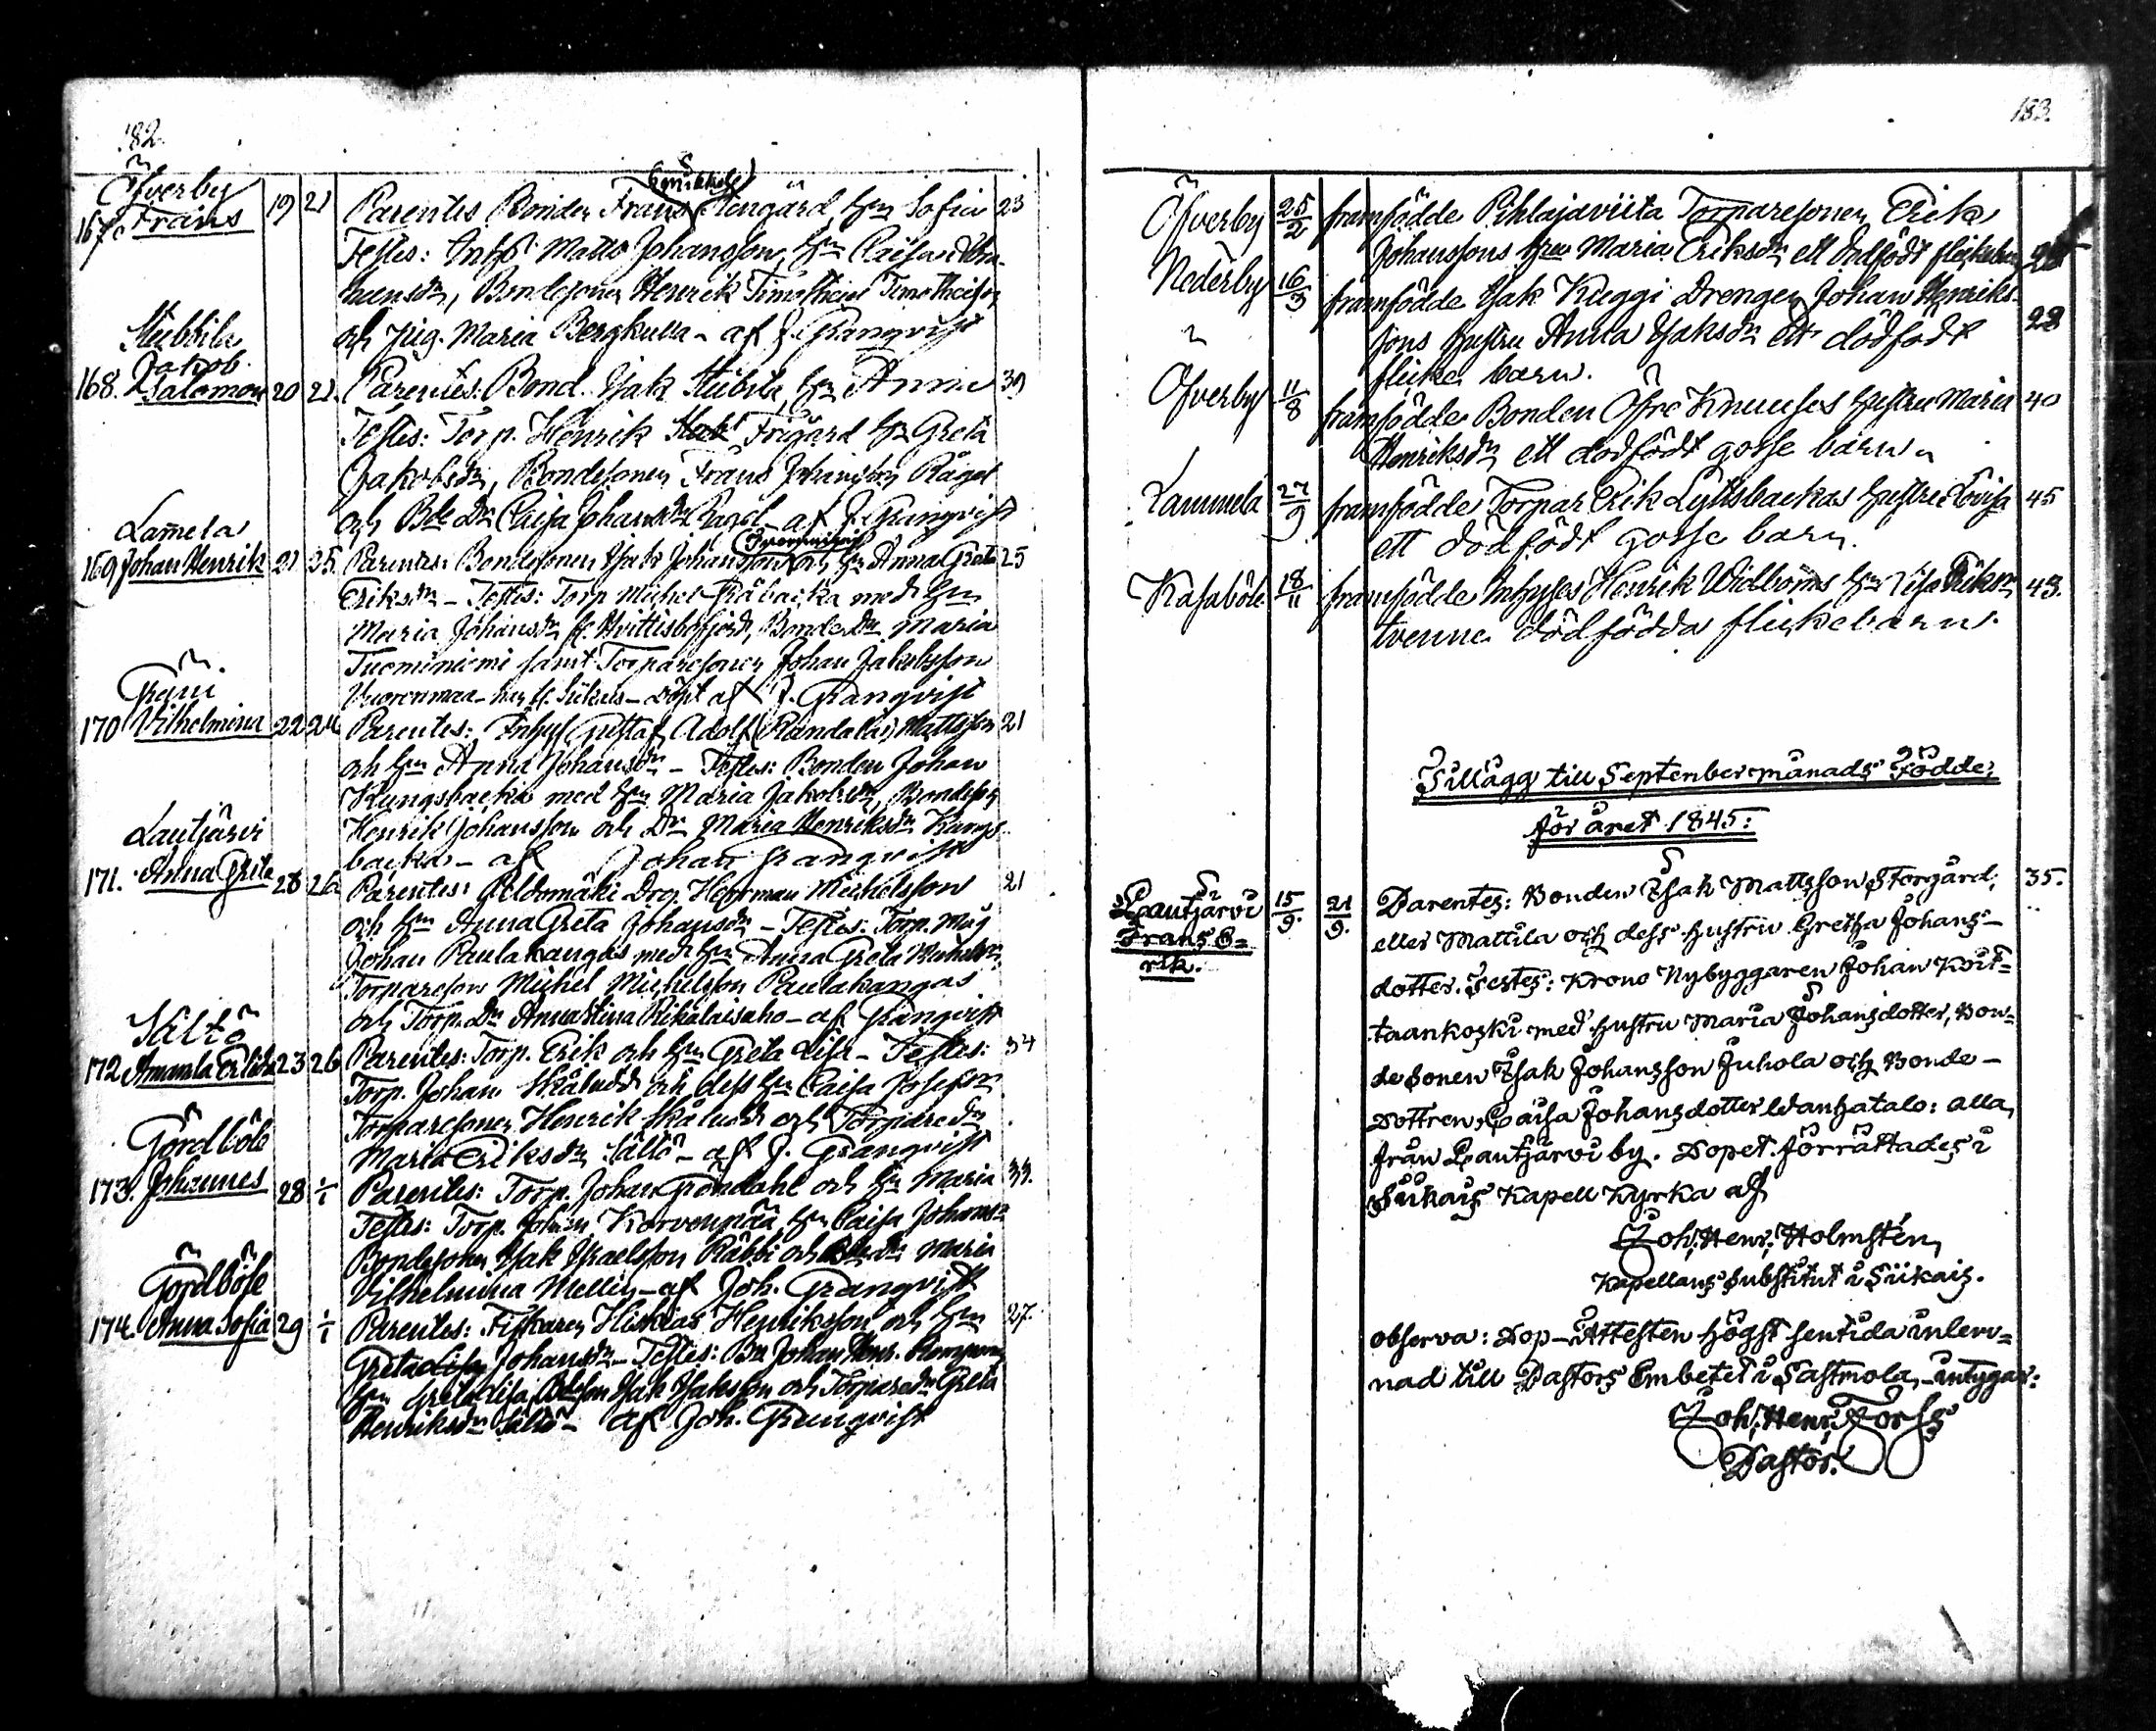 182.
Öfverby
167. Frans 19 21 Parentes Bonden Frans Rengård, Hru Sofia 23
Testes: Inhs Matts Johansson, Hru Caisa
Bondesonen Henrik Timotheus
och Pig. Maria Bergkulla - af J. Granqvist
Stubbila
Jakob
168. Salomon 20 21. Parentes: Bond. Isak Stubila, Hru Anna 39
Testes: Torp. Henrik Frigård Hru Greta
Jakobsdr, Bondesonen Frans Johansson Ragel
och Bde Dr Caisa Johansdr Ragel - af J. Granqvist
Lamela
169 Johan Henrik 21 25. Parentes: Bondesonen Isak Johansson och Hru Anna Greta 25
Eriksdr - Testes: Torp Michel Råbacka med Hru
Maria Johansdr fr. Hvittisbofjerd, Bonde Dr Maria
Tuominiemi samt Torparesonen Johan Jakobsson
Vuorenmaa - döpt af J. Granqvist
170 Vilhelmina 22 24 Parentes: Inhys Gustaf Adolf (Randala) Mattsson 21
och Hru Anna Johansdr - Testes: Bonden Johan
Kungsbacka med Hru Maria Jakobsdr, Bondeson
Henrik Johansson och Dr Maria Henriksdr Kungs-
backa - af Johan Granqvist
Lautjärvi
171. Anna Greta 28 26 Parentes: Peldomäki Drg. Herrman Michelsson 21
och Hru Anna Greta Johansdr - Testes: Torp. Måg
Johan Paulakangas med Hru Anna Greta
Torpareson Michel Michelsson Paulakangas
och Torp. Dr Anna Stina Rikalaisaho - af Granqvist
Sältö
172 Amanda 23 26 Parentes: Torp. Erik och Hru Greta Lisa - Testes: 34
Torp. Johan Skåludd och dess Hru Caisa Josefsdr
Torparesonen Henrik Skåludd och Torpare Dr
Maria Eriksdr Sältö - af J. Granqvist
Gördböle
173. Johannes 28 1/1 Parentes: Torp. Johan Gröndahl och Hru Maria 33.
Testes: Torp. Johan Korvenpää, Hru Caisa Johans-
Bondesonen Isak Israelsson Räbbi och Dr Maria
Vilhelmina Mellin - af Joh. Granqvist
Gördböle
174. Anna Sofia 29 1/1 Parentes: Fiskaren Hiskias Henriksson och Hru 27.
Greta Lisa Johansdr - Testes: Bn Johan Henr.
Hru Greta Lisa, Isak Isaksson och Torpare Dr Greta
Henriksdr Sältö - af Joh. Granqvist
183.
Öfverby 25/2 framfödde Pihlajaviita Torparesonen Erik
Johanssons Hru Maria Eriksdr ett dödfödt flickebarn
Nederby 16/3 framfödde Isak Kuggi Drengen Johan Henriks-
sons Hustru Anna Isaksdr ett dödfödt 28
flicke barn.
Öfverby 11/8 framfödde Bonden Öfre Knuuses Hustru Maria 40
Henriksdr ett dödfödt gosse barn
Lammela 27/9 framfödde Torpar Erik Lyttsbackas Hustru Lovisa 45
ett dödfödt gosse barn.
Kasaböle 18/11 framfödde Inhyses Henrik Widboms Hru Lisa Eriksdr 43.
tvenne dödfödda flickebarn.
Tillägg till September månads Födde,
för året 1845:
Lautjärvi 15/9. 21/9. Parentes: Bonden Isak Mattsson Storgård, 35.
Frans E=
rik.
eller Mattila och dess Hustru Gretha Johans-
dotter. Testes: Krono Nybyggaren Johan Kort=
taankoski med Hustru Maria Johansdotter, Bon=
desonen Isak Johansson Juhola och Bonde-
Dottren, Caisa Johansdotter Wanhatalo: alla,
från Lautjärvi by. Dopet förrättades i
Siikais Kapell Kyrka af
Joh: Henr: Holmstén,
Kapellans Substitut i Siikais.
observa: Dop-Attesten högst sentida inlem=
nad till Pastors Embetet i Sastmola, intygar:
Joh: Henr: Forss
Pastor.